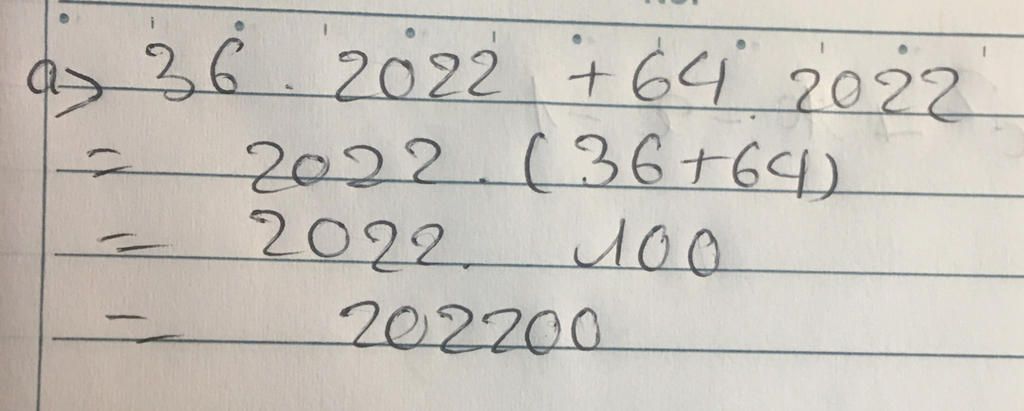 a> 36 . 2022 + 64 . 2022
= 2022 . (36+64)
= 2022 . 100
= 202200